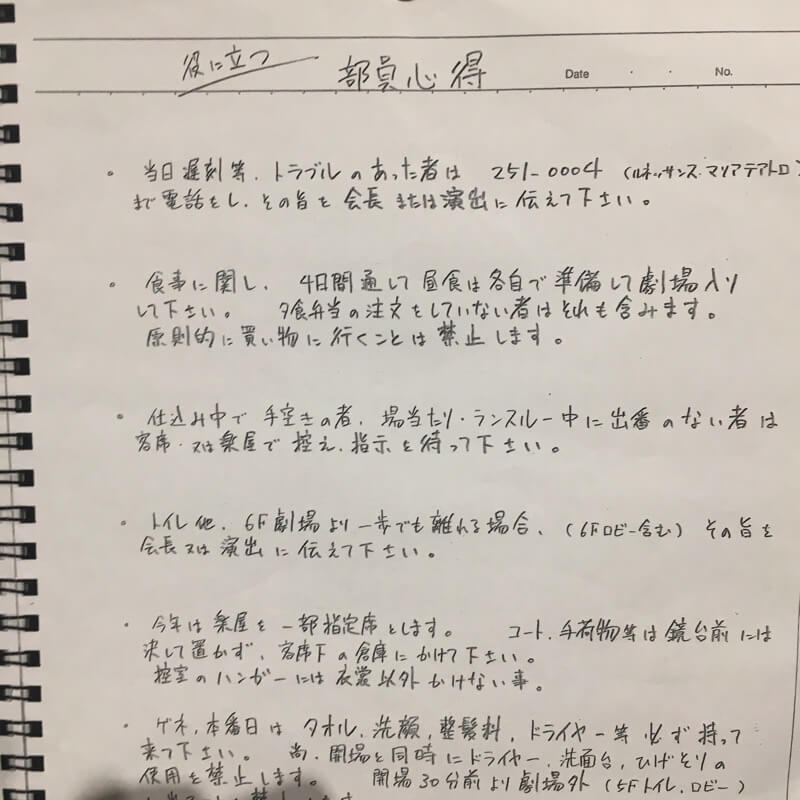 役に立つ 部員心得 Date No.
・ 当日遅刻等、トラブルのあった者は 251-0004 (ルネッサンス・マリアテアトロ)
まで電話をし、その旨を会長または演出に伝えて下さい。
・ 食事に関し、4日間通して昼食は各自で準備して劇場入り
して下さい。 夕食弁当の注文をしていない者はそれも含みます。
原則的に買い物に行くことは禁止します。
・ 仕込み中で手空きの者、場当たり・ランスルー中に出番のない者は
客席・又は楽屋で控え、指示を待って下さい。
・ トイレ他、6F劇場より一歩でも離れる場合、(6Fロビー含む) その旨を
会長又は演出に伝えて下さい。
・ 今年は楽屋を一部指定席とします。 コート、手荷物等は鏡台前には
決して置かず、客席下の倉庫にかけて下さい。
控室のハンガーには衣裳以外かけない事。
・ ゲネ、本番日はタオル、洗顔、整髪料、ドライヤー等必ず持って
来て下さい。 尚、開場と同時にドライヤー、洗面台、ひげそりの
使用を禁止します。 開場30分前より劇場外(5Fトイレ、ロビー)